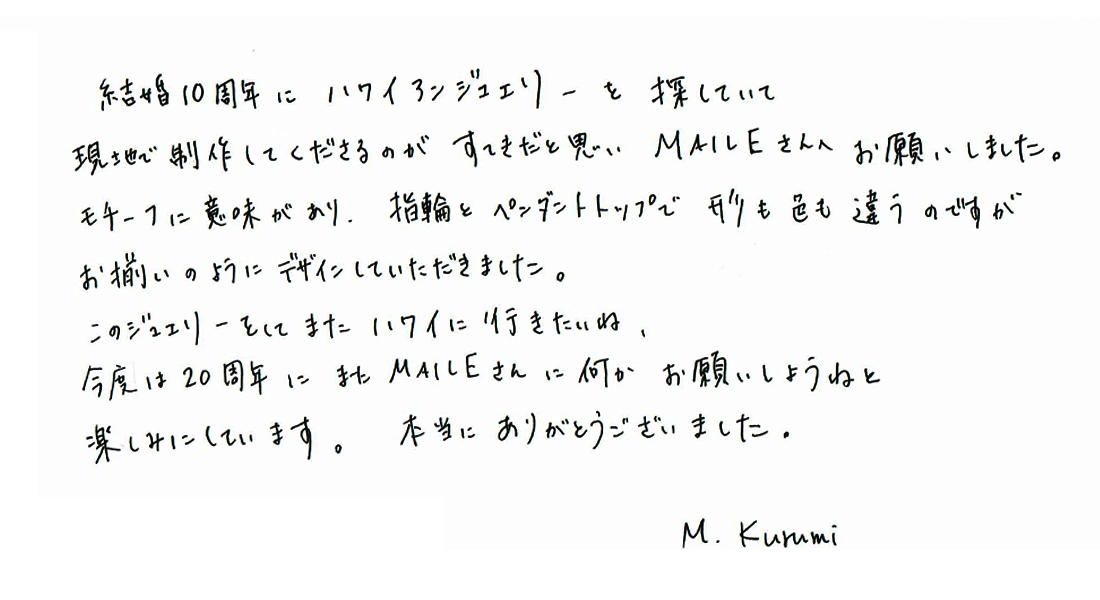 結婚10周年に ハワイアンジュエリーを 探していて
現地で制作してくださるのが すてきだと思い MAILEさんへ お願いしました。
モチーフに意味があり、指輪とペンダントトップで 形も色も違うのですが
お揃いのようにデザインしていただきました。
このジュエリーをしてまたハワイに行きたいね、
今度は20周年に またMAILEさんに何か お願いしようねと
楽しみにしています。 本当にありがとうございました。
M. Kurumi